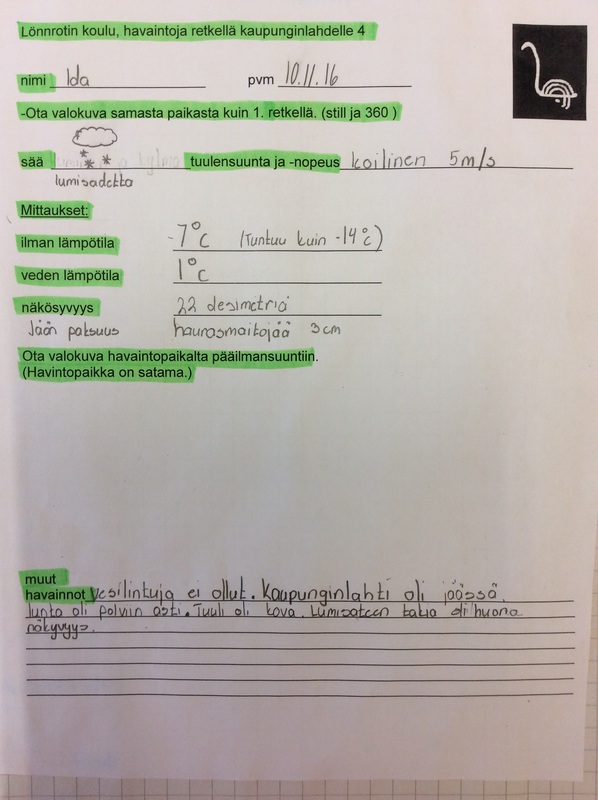 Lönnrotin koulu, havaintoja retkellä kaupunginlahdelle 4
nimi Ida pvm 10.11.16
-Ota valokuva samasta paikasta kuin 1. retkellä. (still ja 360 )
sää tuulensuunta ja -nopeus koilinen 5m/s
lumisadetta
Mittaukset:
ilman lämpötila -7°c (Tuntuu kuin -14°c)
veden lämpötila 1°c
näkösyvyys 22 desimetriä
Jään paksuus haurasmaitojää 3cm
Ota valokuva havaintopaikalta pääilmansuuntiin.
(Havintopaikka on satama.)
muut
havainnot Vesilintuja ei ollut. Kaupunginlahti oli jäässä.
Lunta oli polviin asti. Tuuli oli kova. Lumisateen takia oli huono
näkyvyys.